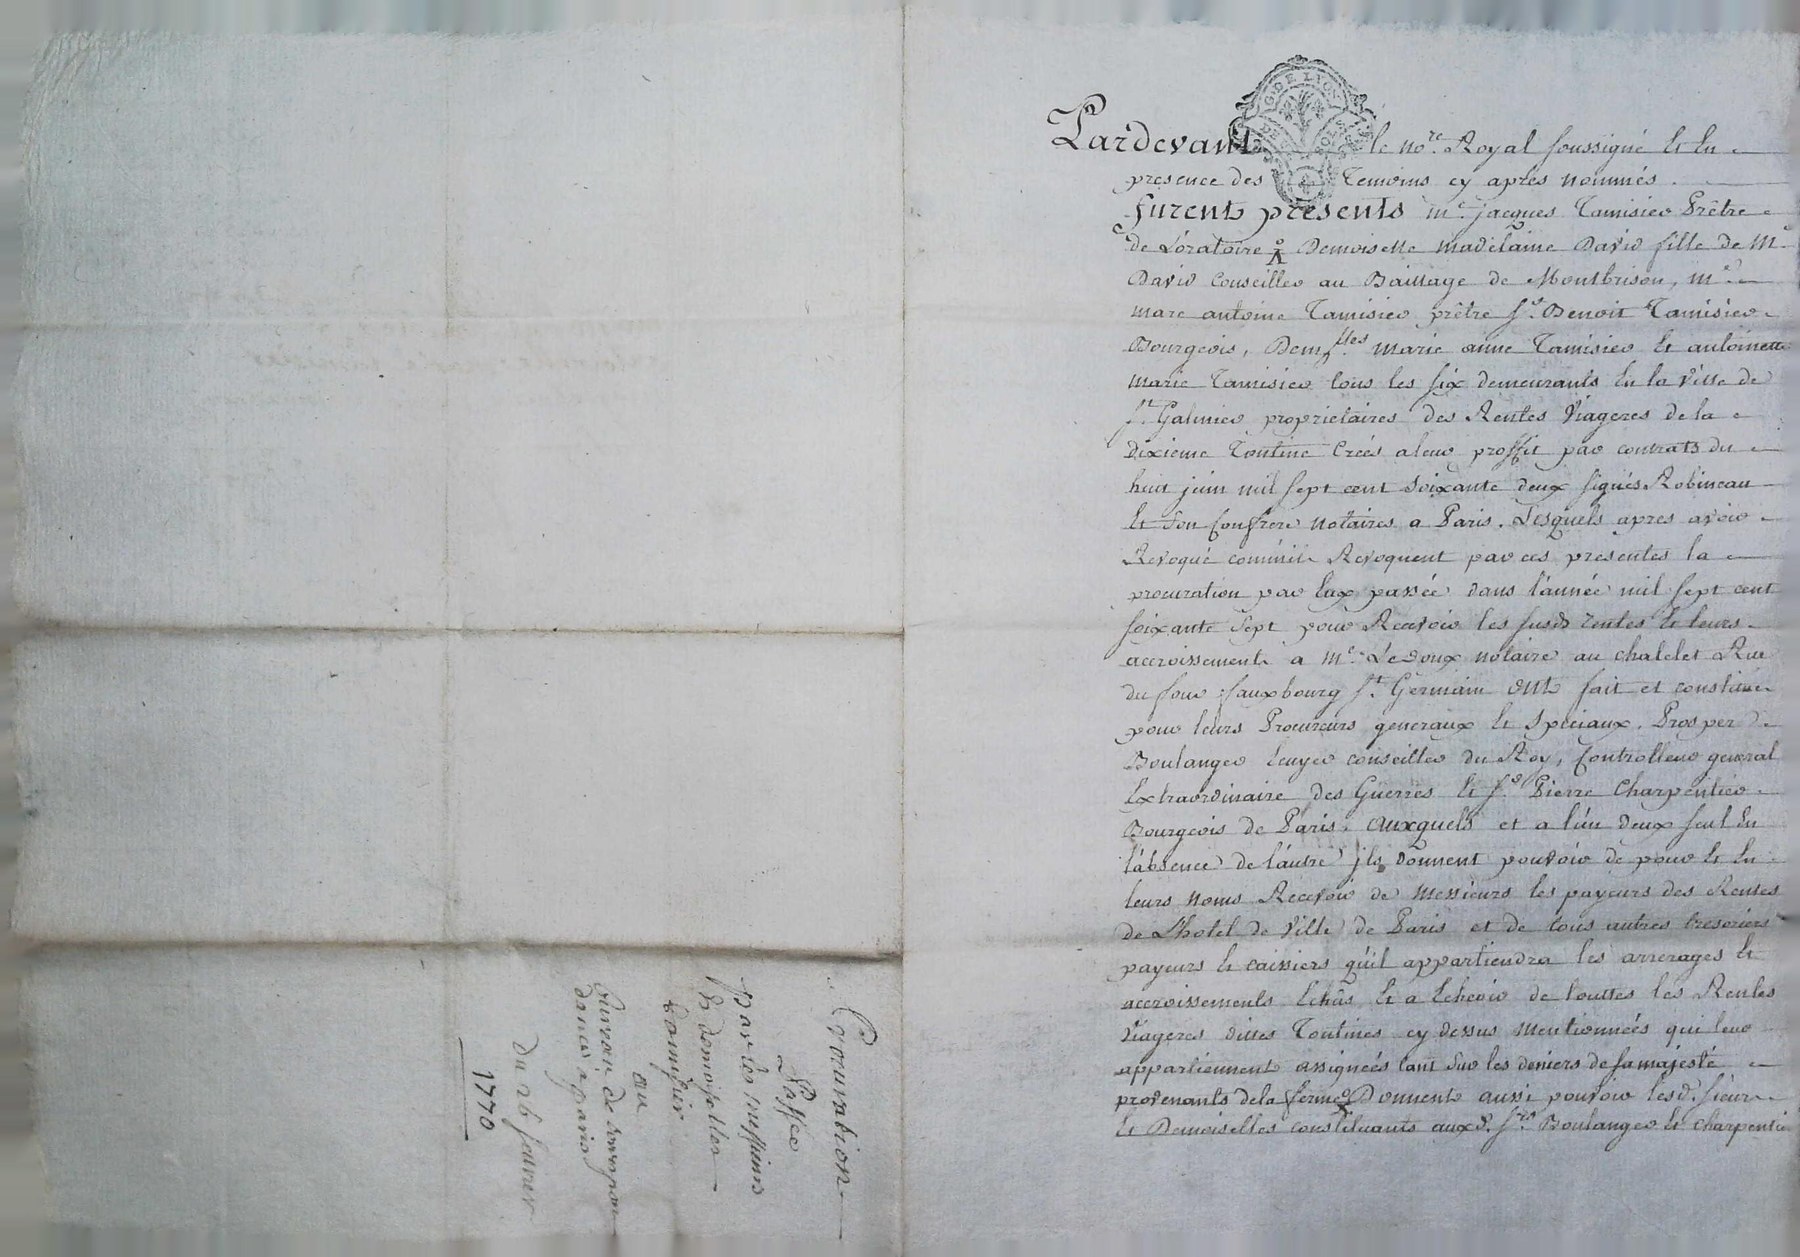 G. DE LYON
Pardevant le no.re Royal soussigné et en
presence des Temoins cy aprés nommés.
furent presents m.e jacques Tamisier Prêtre
de L'oratoire Demoiselle madelaine David fille de M.e
David Conseiller au Baillage de Montbrison, m.e
marc antoine Tamisier prêtre s.r Benoit Tamisier
Bourgeois, Dem.lles marie anne Tamisier et antoinette
marie Tamisier tous les six demeurants en la Ville de
s.t Galmier proprietaires des Rentes Viageres de la
dixieme Tontine Creés a leur proffit par contrats du
huit juin mil sept cent soixante deux signés Robineau
et son confrere notaires a Paris. Lesquels apres avoir
Revoqué comme ils Revoquent par ces presentes la
procuration par Eux passée dans l'année mil sept cent
soixante sept pour Recevoir les susd. rentes et leurs
accroissements a M.e Ledoux notaire au chatelet Rue
du four fauxbourg s.t Germain ont fait et constitué
pour leurs Procureurs generaux et speciaux. Prosper
Boulanger Ecuyer conseiller du Roy, Controlleur general
Extraordinaire des Guerres et s.r Pierre Charpentier
Bourgeois de Paris, auxquels et a l'un deux seul en
l'absence de l'autre ils donnent pouvoir de pour et en
leurs noms Recevoir de Messieurs les payeurs des Rentes
de L'hotel de Ville de Paris et de tous autres tresoriers
payeurs et caissiers qu'il appartiendra les arrerages et
accroissements Echûs et a Echeoir de touttes les Rentes
Viageres dittes Tontines cy dessus mentionnées qui leur
appartiennent assignées tant sur les deniers de sa majesté
provenants de la ferme Donnent aussi pouvoir lesd. sieurs
et Demoiselles constituants auxd. s.rs Boulanger et charpentier
Procuration
Passée
par les messieurs
et demoiselles
tamisier
au
de
a paris
Du 26 fevrier
1770